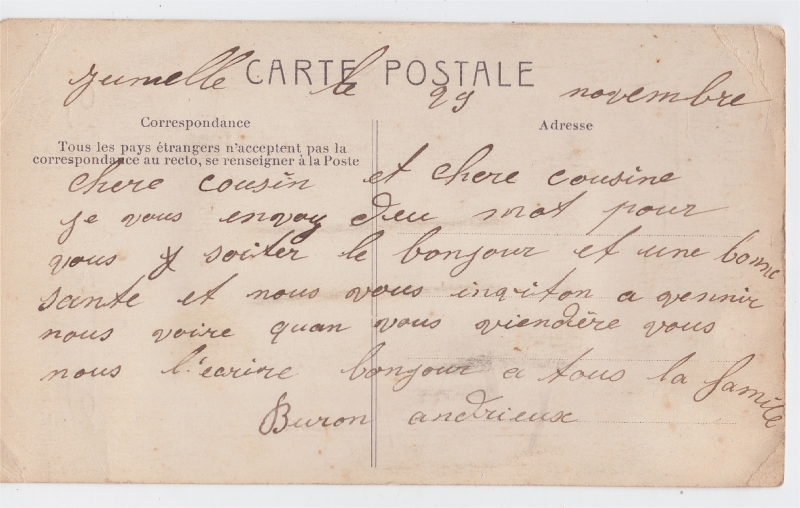 CARTE POSTALE
Jumelle le 29 novembre
Correspondance
Adresse
Tous les pays étrangers n'acceptent pas la
correspondance au recto, se renseigner à la Poste
chere cousin et chere cousine
je vous envoy deu mot pour
vous soiter le bonjour et une bonne
sante et nous vous inviton a vennir
nous voire quan vous viendère vous
nous l'ecrire bonjour a tous la famile
Buron andrieux